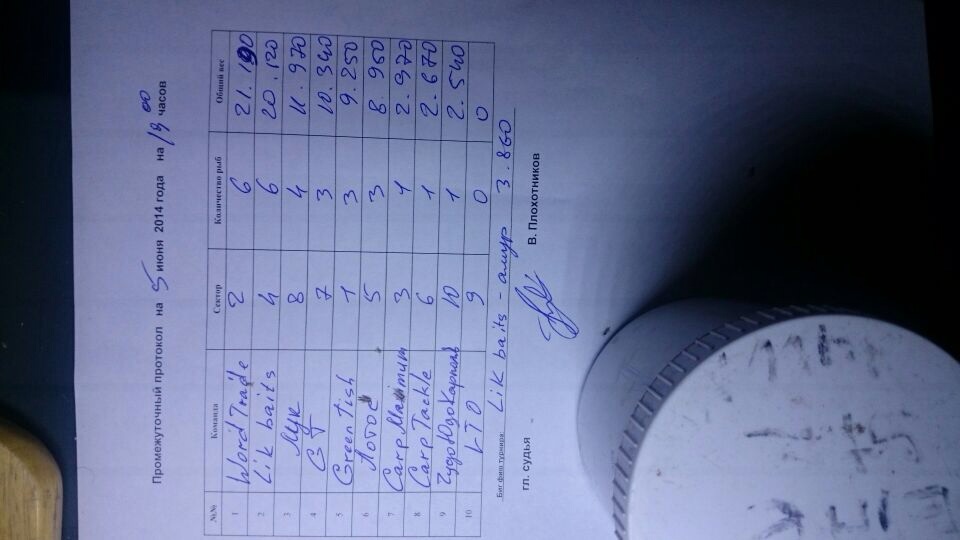 Промежуточный протокол на 5 июня 2014 года на 19 00 часов
№№ Команда Сектор Количество рыб Общий вес
1 World Trade 2 6 21.190
2 Lik baits 4 6 20.120
3 8 4 11.970
4 7 3 10.340
5 Green fish 1 3 9.250
6 Лотос 5 3 8.960
7 Carp Maximum 3 1 2.970
8 Carp Tackle 6 1 2.670
9 ЧудоЮдоКарполь 10 1 2.540
10 9 0 0
Биг фиш турнира: Lik baits - амур 3.860
гл. судья В. Плохотников